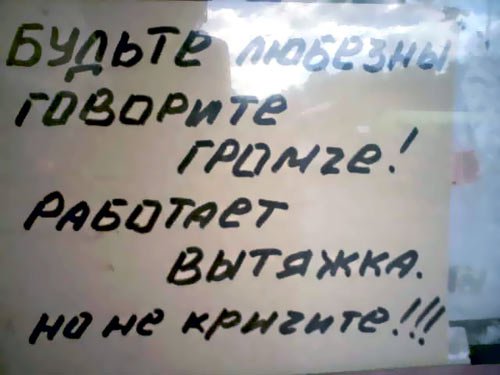 БУДЬТЕ ЛЮБЕЗНЫ
ГОВОРИТЕ
ГРОМЧЕ!
РАБОТАЕТ
ВЫТЯЖКА.
но не кричите!!!